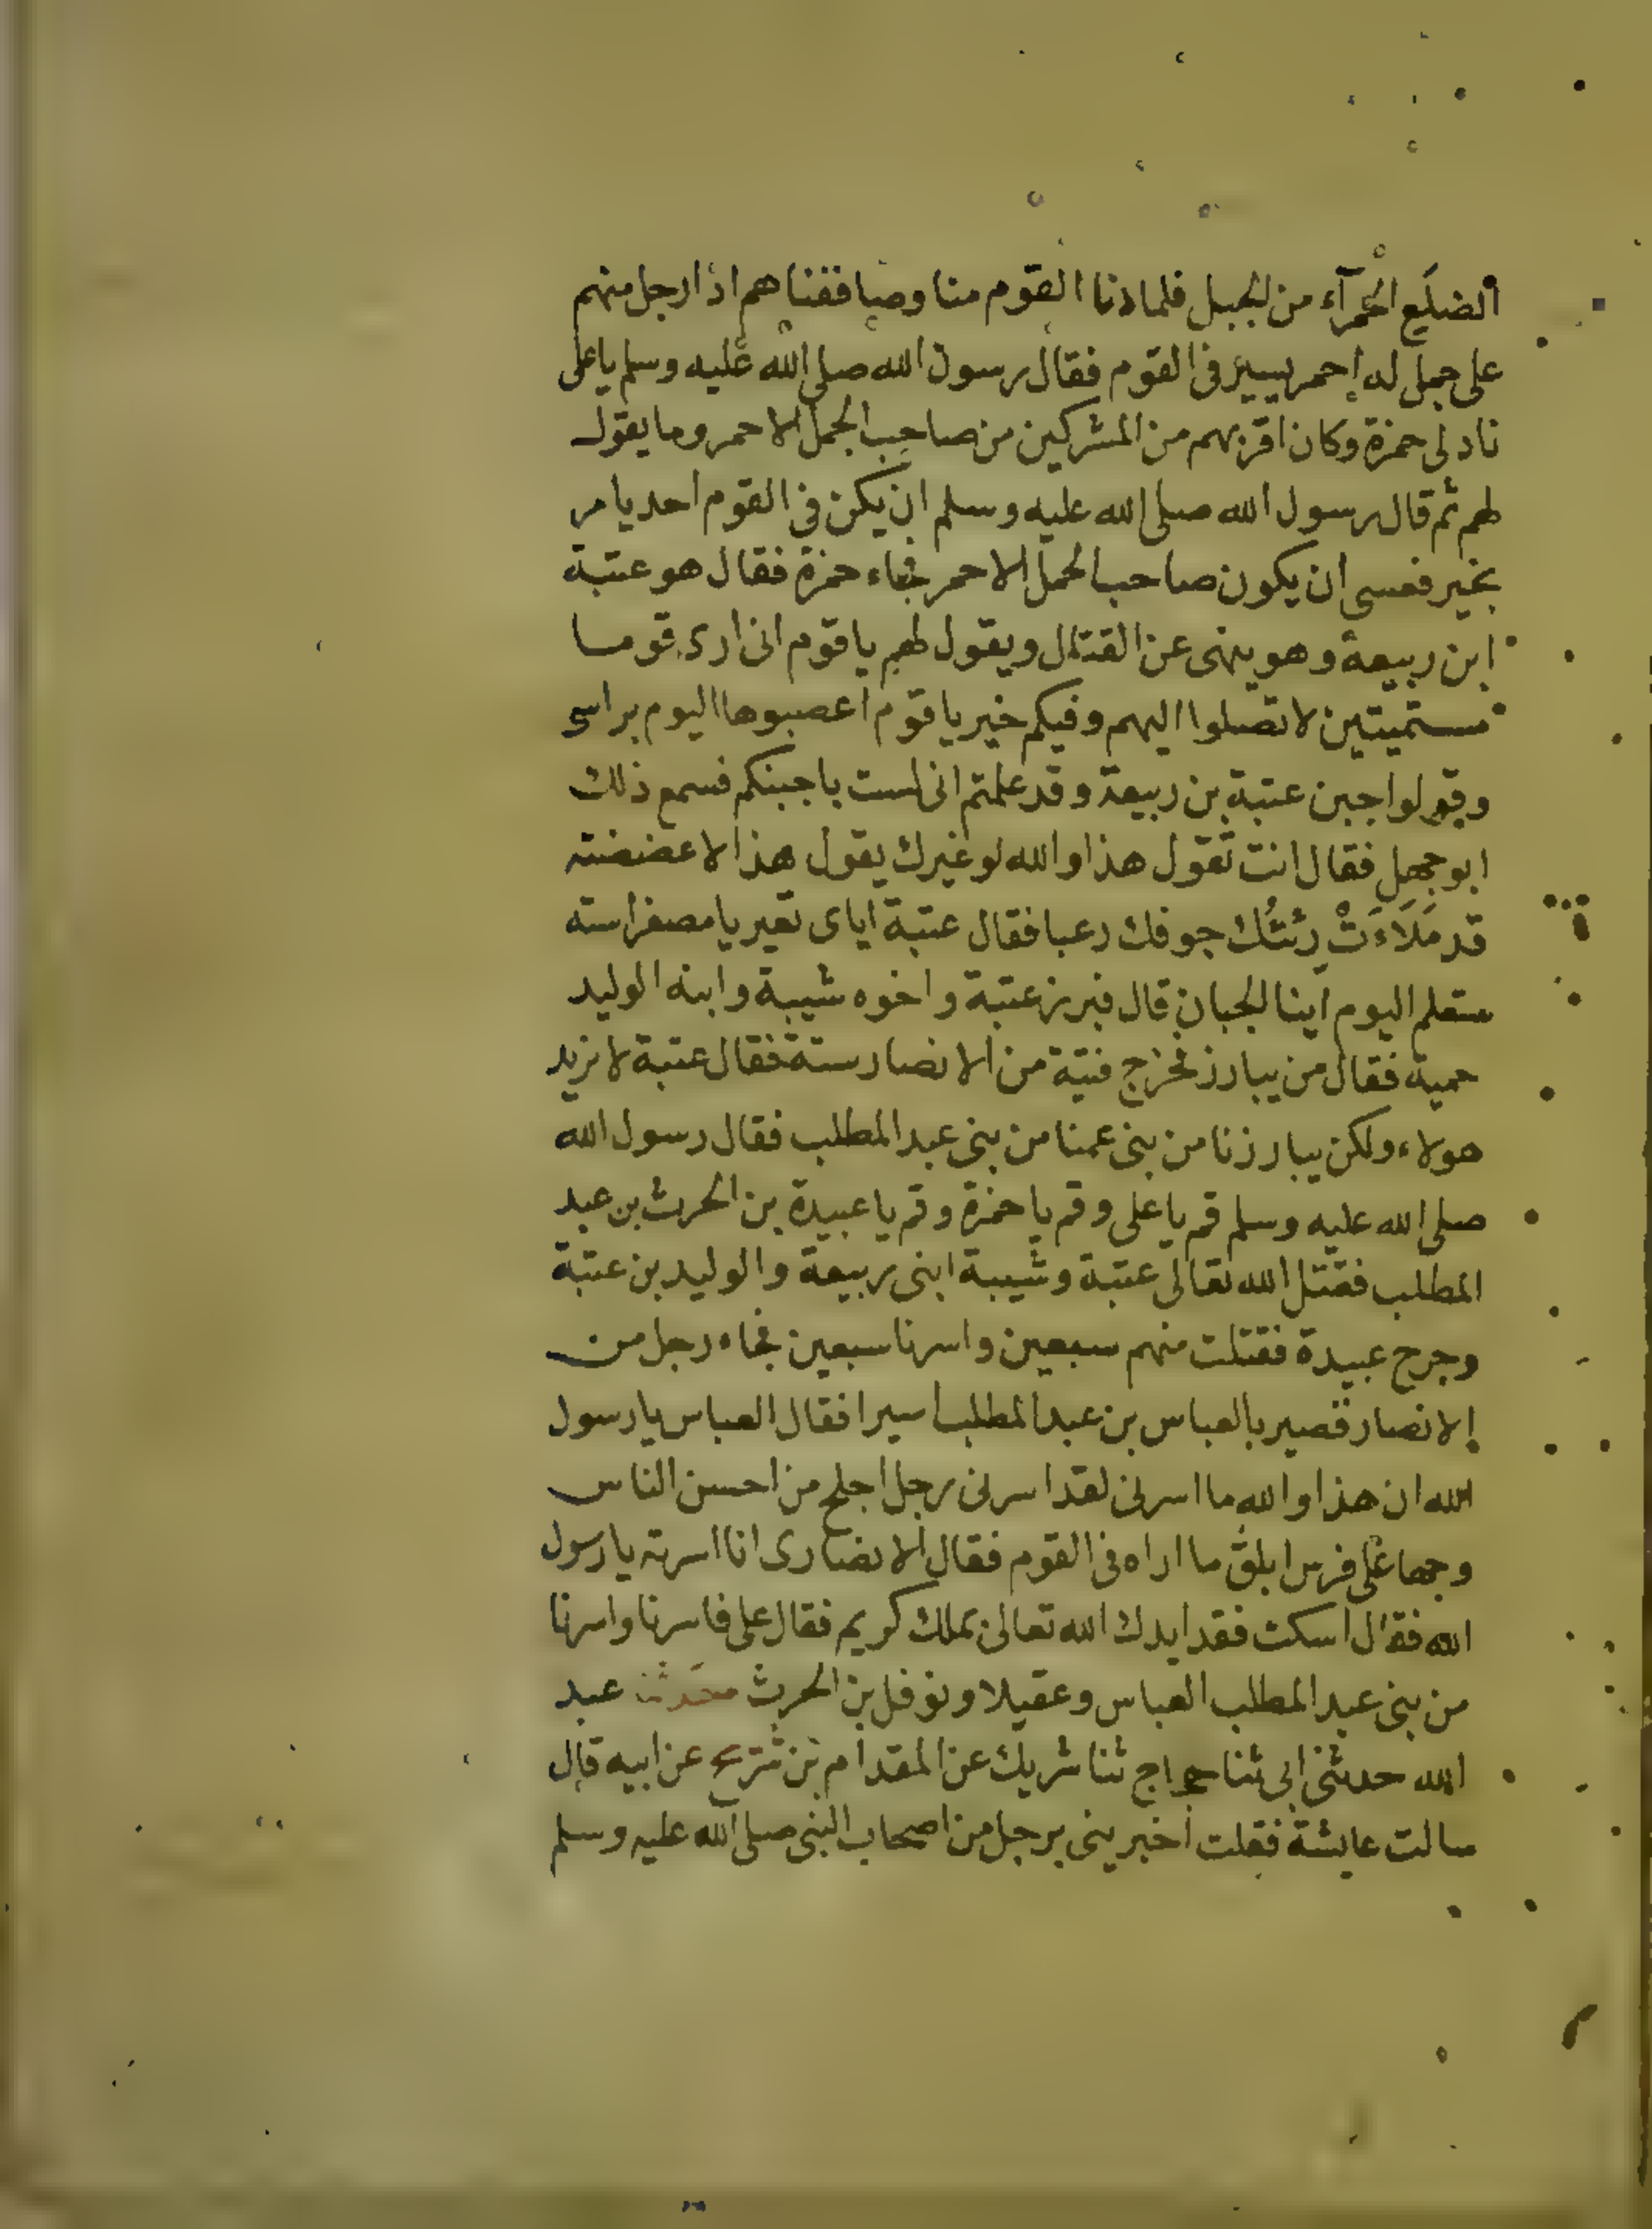 الضلَع الحمرآء من الجبل فلما دنا القوم منا وصاففناهم اذا رجل منهم
على جمل له احمر يسير فى القوم فقال رسول الله صلى الله عليه وسلم يا على
ناد لى حمزة وكان اقربهم من المشركين من صاحب الجمل الاحمر وما يقول
لهم ثم قال رسول الله صلى الله عليه وسلم ان يكن فى القوم احد يامر
بخير فعسى ان يكون صاحب الجمل الاحمر فجاء حمزة فقال هو عتبة
ابن ربيعة وهو ينهى عن القتال ويقول لهم يا قوم انى ارى قوما
مستميتين لا تصلوا اليهم وفيكم خير يا قوم اعصبوها اليوم براسى
وقولوا جبن عتبة بن ربيعة وقد علمتم انى لست باجبنكم فسمع ذلك
ابو جهل فقال انت تقول هذا والله لو غيرك يقول هذا لاعضضته
قد مَلَاَءَتْ رِئتُك جوفك رعبا فقال عتبة اياى تعير يا مصفر استه
ستعلم اليوم اينا الجبان قال فبرز عتبة واخوه شيبة وابنه الوليد
حمية فقال من يبارز فخرج فتية من الانصار ستة فقال عتبة لا نريد
هولاء ولكن يبارزنا من بنى عمنا من بنى عبد المطلب فقال رسول الله
صلى الله عليه وسلم قم يا على وقم يا حمزة وقم يا عبيدة بن الحرث بن عبد
المطلب فقتل الله تعالى عتبة وشيبة ابنى ربيعة والوليد بن عتبة
وجرح عبيدة فقتلت منهم سبعين واسرنا سبعين فجاء رجل من
الانصار قصير بالعباس بن عبد المطلب اسيرا فقال العباس يا رسول
الله ان هذا والله ما اسرنى لقد اسرنى رجل اجلح من احسن الناس
وجها على فرس ابلق ما اراه فى القوم فقال الانصارى انا اسرته يا رسول
الله فقال اسكت فقد ايدك الله تعالى بملك كريم فقال على فاسرنا واسرنا
من بنى عبد المطلب العباس وعقيلا ونوفل بن الحرث حدثنا عبد
الله حدثنى ابى ثنا حجاج ثنا شريك عن المقدام بن شريح عن ابيه قال
سالت عايشة فقلت اخبرينى برجل من اصحاب النبى صلى الله عليه وسلم